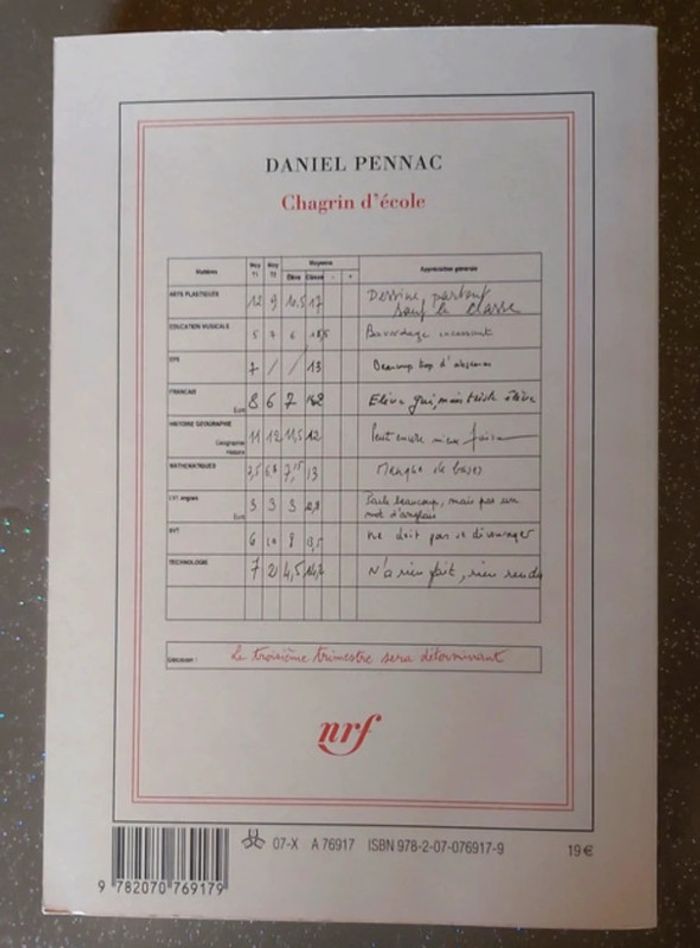 DANIEL PENNAC
Chagrin d'école
Matières Moy T1 Moy T2 Moyenne Appréciation générale
Élève Classe - +
ARTS PLASTIQUES 12 9 10,5 17 Dessine partout
sauf en classe
EDUCATION MUSICALE 5 7 6 Bavardage incessant
EPS 7 / / 13 Beaucoup trop d'absences
FRANCAIS 8 6 7 Elève gai, mais triste élève
Ecrit
HISTOIRE GEOGRAPHIE 11 12 11,5 12 Peut encore mieux faire
Géographie
Histoire
MATHEMATIQUES 7,5 6,8 7,15 13 Manque de bases
LV1 anglais 3 3 3 Parle beaucoup, mais pas un
Ecrit mot d'anglais
SVT 6 10 8 13,5 Ne doit pas se décourager
TECHNOLOGIE 7 2 4,5 N'a rien fait, rien rendu
Décision : Le troisième trimestre sera déterminant
nrf
07-X A 76917 ISBN 978-2-07-076917-9 19 €
9 782070 769179